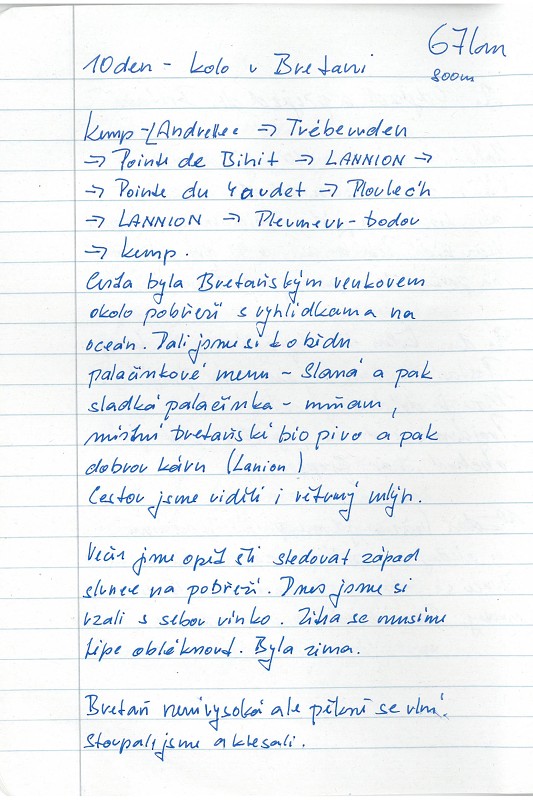 67km
10den - kolo v Bretani
800m
kemp- Landrellec → Trébeurden
→ Pointe de Bihit → LANNION →
→ Pointe du Yaudet → Ploulec'h
→ LANNION → Pleumeur-bodou
→ kemp.
Cesta byla Bretaňským venkovem
okolo pobřeží s vyhlídkama na
oceán. Dali jsme si k obědu
palačinkové menu - slaná a pak
sladká palačinka - mňam,
místní bretaňské bio pivo a pak
dobrou kávu (Lanion)
Cestou jsme viděli i větrný mlýn.
Večer jsme opět šli sledovat západ
slunce na pobřeží. Dnes jsme si
vzali s sebou vínko. Zítra se musíme
lépe obléknout. Byla zima.
Bretaň není vysoká ale pěkně se vlní.
Stoupali jsme a klesali.